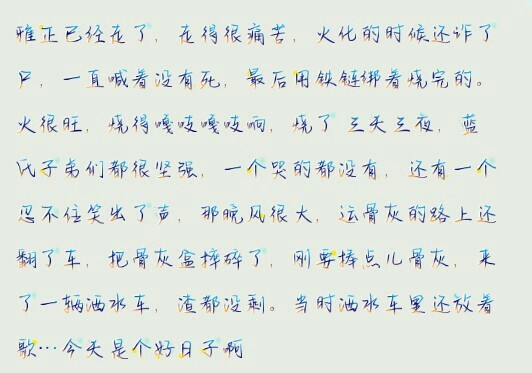 雅正已经走了，走得很痛苦，火化的时候还诈了
尸，一直喊着没有死，最后用铁链绑着烧完的。
火很旺，烧得嘎吱嘎吱响，烧了三天三夜，蓝
氏子弟们都很坚强，一个哭的都没有，还有一个
忍不住笑出了声，那晚风很大，运骨灰的路上还
翻了车，把骨灰盒摔碎了，刚要捧点儿骨灰，来
了一辆洒水车，渣都没剩。当时洒水车里还放着
歌…今天是个好日子啊